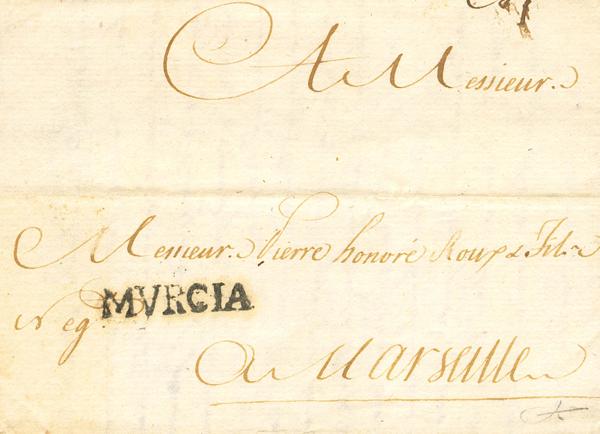 A Messieur
Messieur Pierre honoré Roux & Fils
Neg
MVRCIA
a Marseille